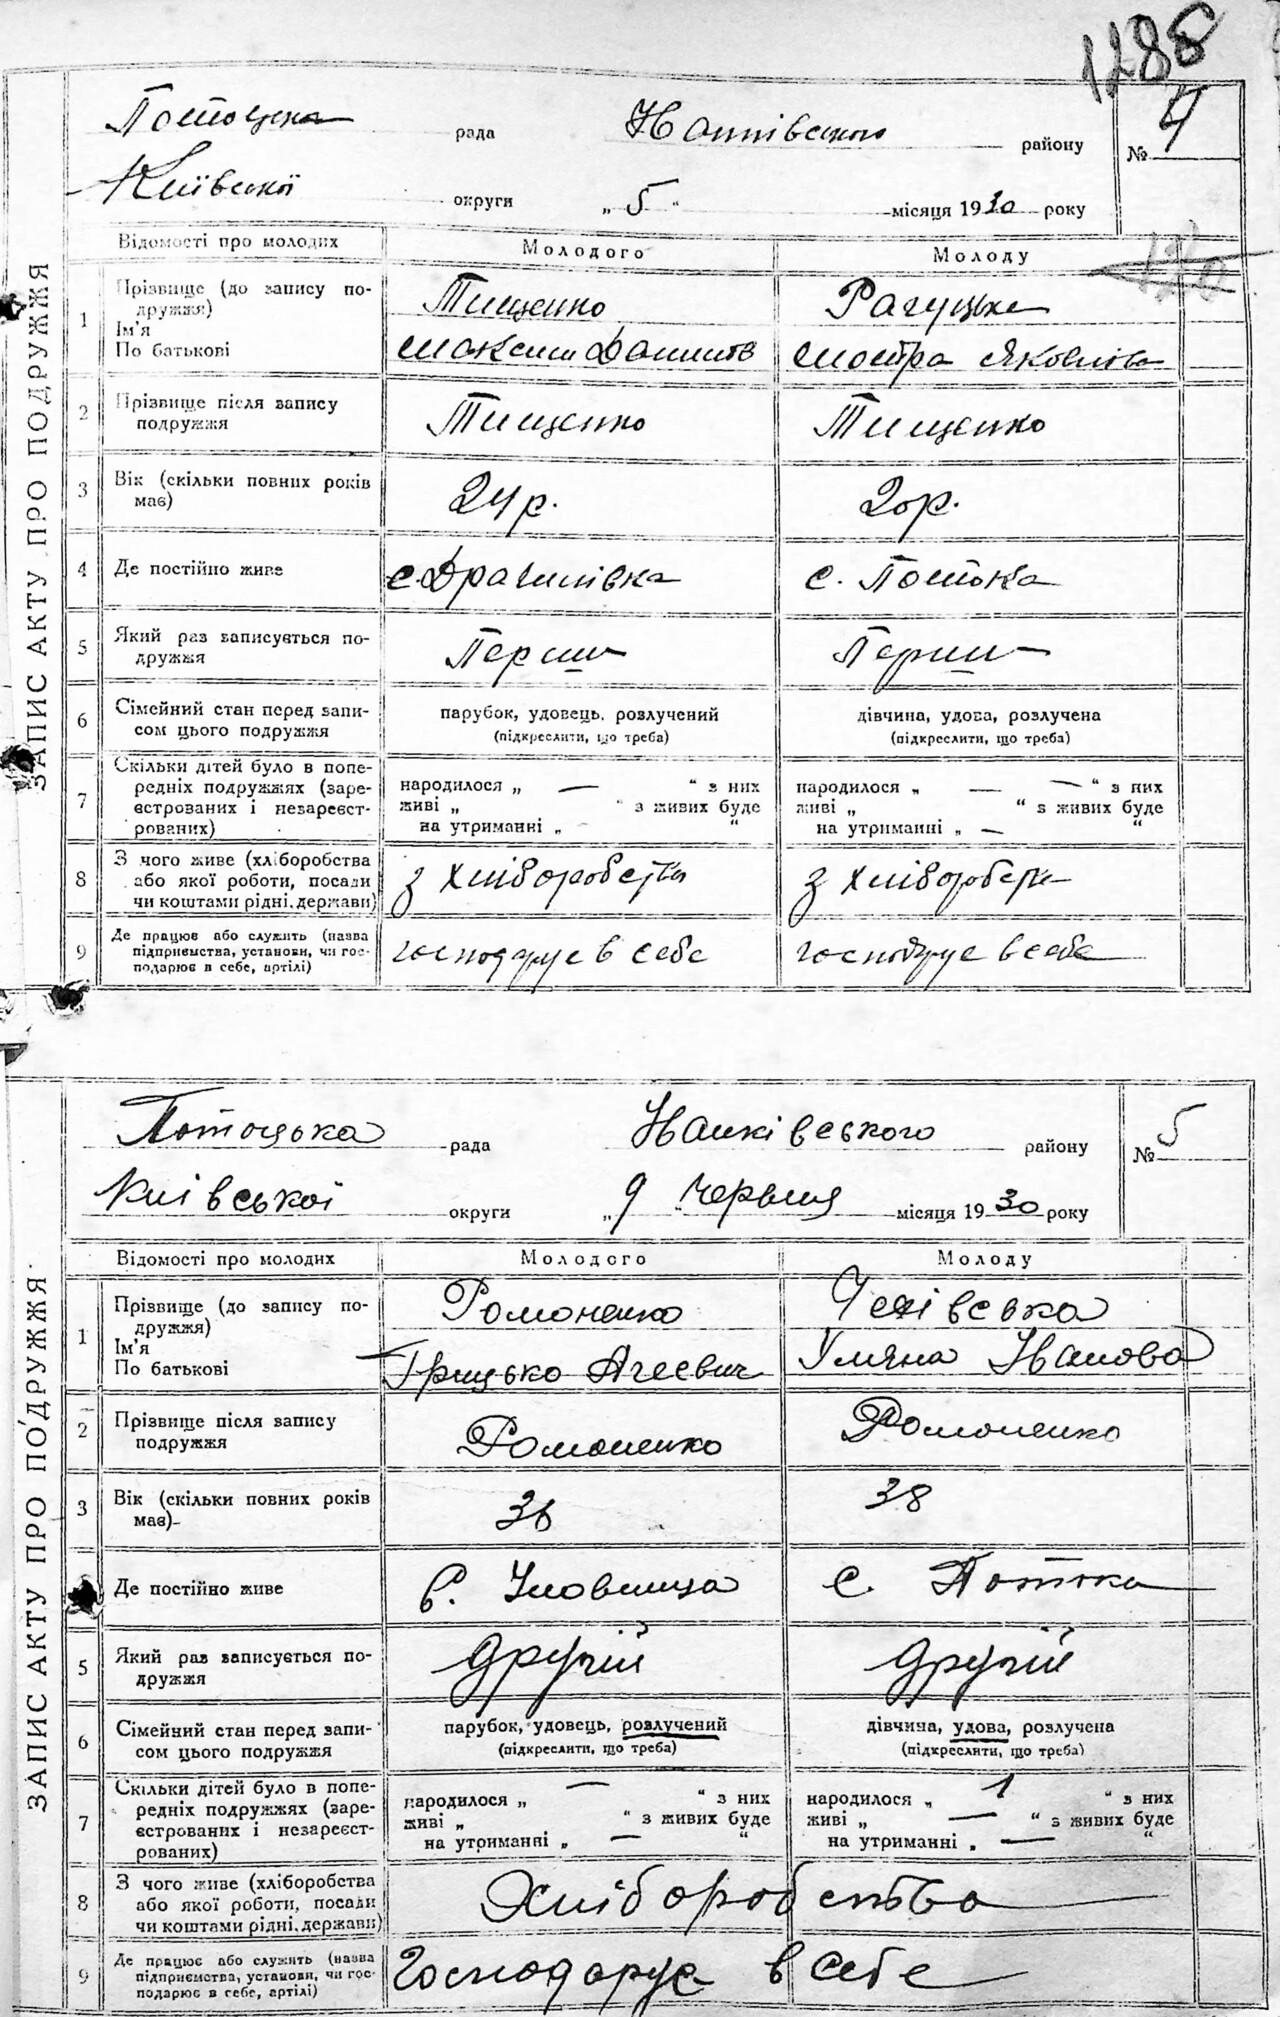 1288
Потоцька рада Наппівського району № 4
Київської округи „ 5 “ місяця 1930 року
Відомості про молодих Молодого Молоду
ЗАПИС АКТУ ПРО ПОДРУЖЖЯ
1 Прізвище (до запису по-
дружжя) Тищенко
Ім'я
По батькові Максим Яковлівна
2 Прізвище після запису
подружжя Тищенко Тищенко
3 Вік (скільки повних років
має) 24 р. 20 р.
4 Де постійно живе с. с. Потока
5 Який раз записується по-
дружжя Перший Перший
6 Сімейний стан перед запи-
сом цього подружжя парубок, удовець, розлучений дівчина, удова, розлучена
(підкреслити, що треба) (підкреслити, що треба)
7 Скільки дітей було в попе-
редніх подружжях (заре-
єстрованих і незареєст-
рованих)
народилося „ — “ з них народилося „ — — “ з них
живі „ “ з живих буде живі „ “ з живих буде
на утриманні „ - “ на утриманні „ — “
8 З чого живе (хліборобства
або якої роботи, посади
чи коштами рідні, держави) з хліборобства з хліборобства
9 Де працює або служить (назва
підприємства, установи, чи гос-
подарює в себе, артілі) господарує в себе господарує в себе
Потоцька рада району № 5
Київської округи „ 9 “ червня місяця 1930 року
Відомості про молодих Молодого Молоду
ЗАПИС АКТУ ПРО ПОДРУЖЖЯ
1 Прізвище (до запису по-
дружжя) Романенко
Ім'я
По батькові Грицько Агеєвич Уляна Іванова
2 Прізвище після запису
подружжя Романенко Романенко
3 Вік (скільки повних років
має) 36 38
4 Де постійно живе с. с. Потока
5 Який раз записується по-
дружжя другій другій
6 Сімейний стан перед запи-
сом цього подружжя парубок, удовець, розлучений дівчина, удова, розлучена
(підкреслити, що треба) (підкреслити, що треба)
7 Скільки дітей було в попе-
редніх подружжях (заре-
єстрованих і незареєст-
рованих)
народилося „ — “ з них народилося „ 1 “ з них
живі „ “ з живих буде живі „ — “ з живих буде
на утриманні „ — “ на утриманні „ — “
8 З чого живе (хліборобства
або якої роботи, посади
чи коштами рідні, держави) Хліборобства
9 Де працює або служить (назва
підприємства, установи, чи гос-
подарює в себе, артілі) Господарує в себе